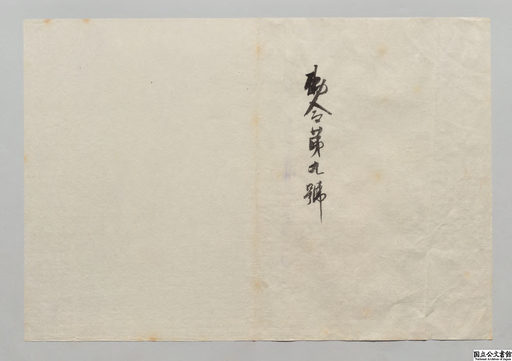 勅令第九號
国立公文書館
National Archives of Japan